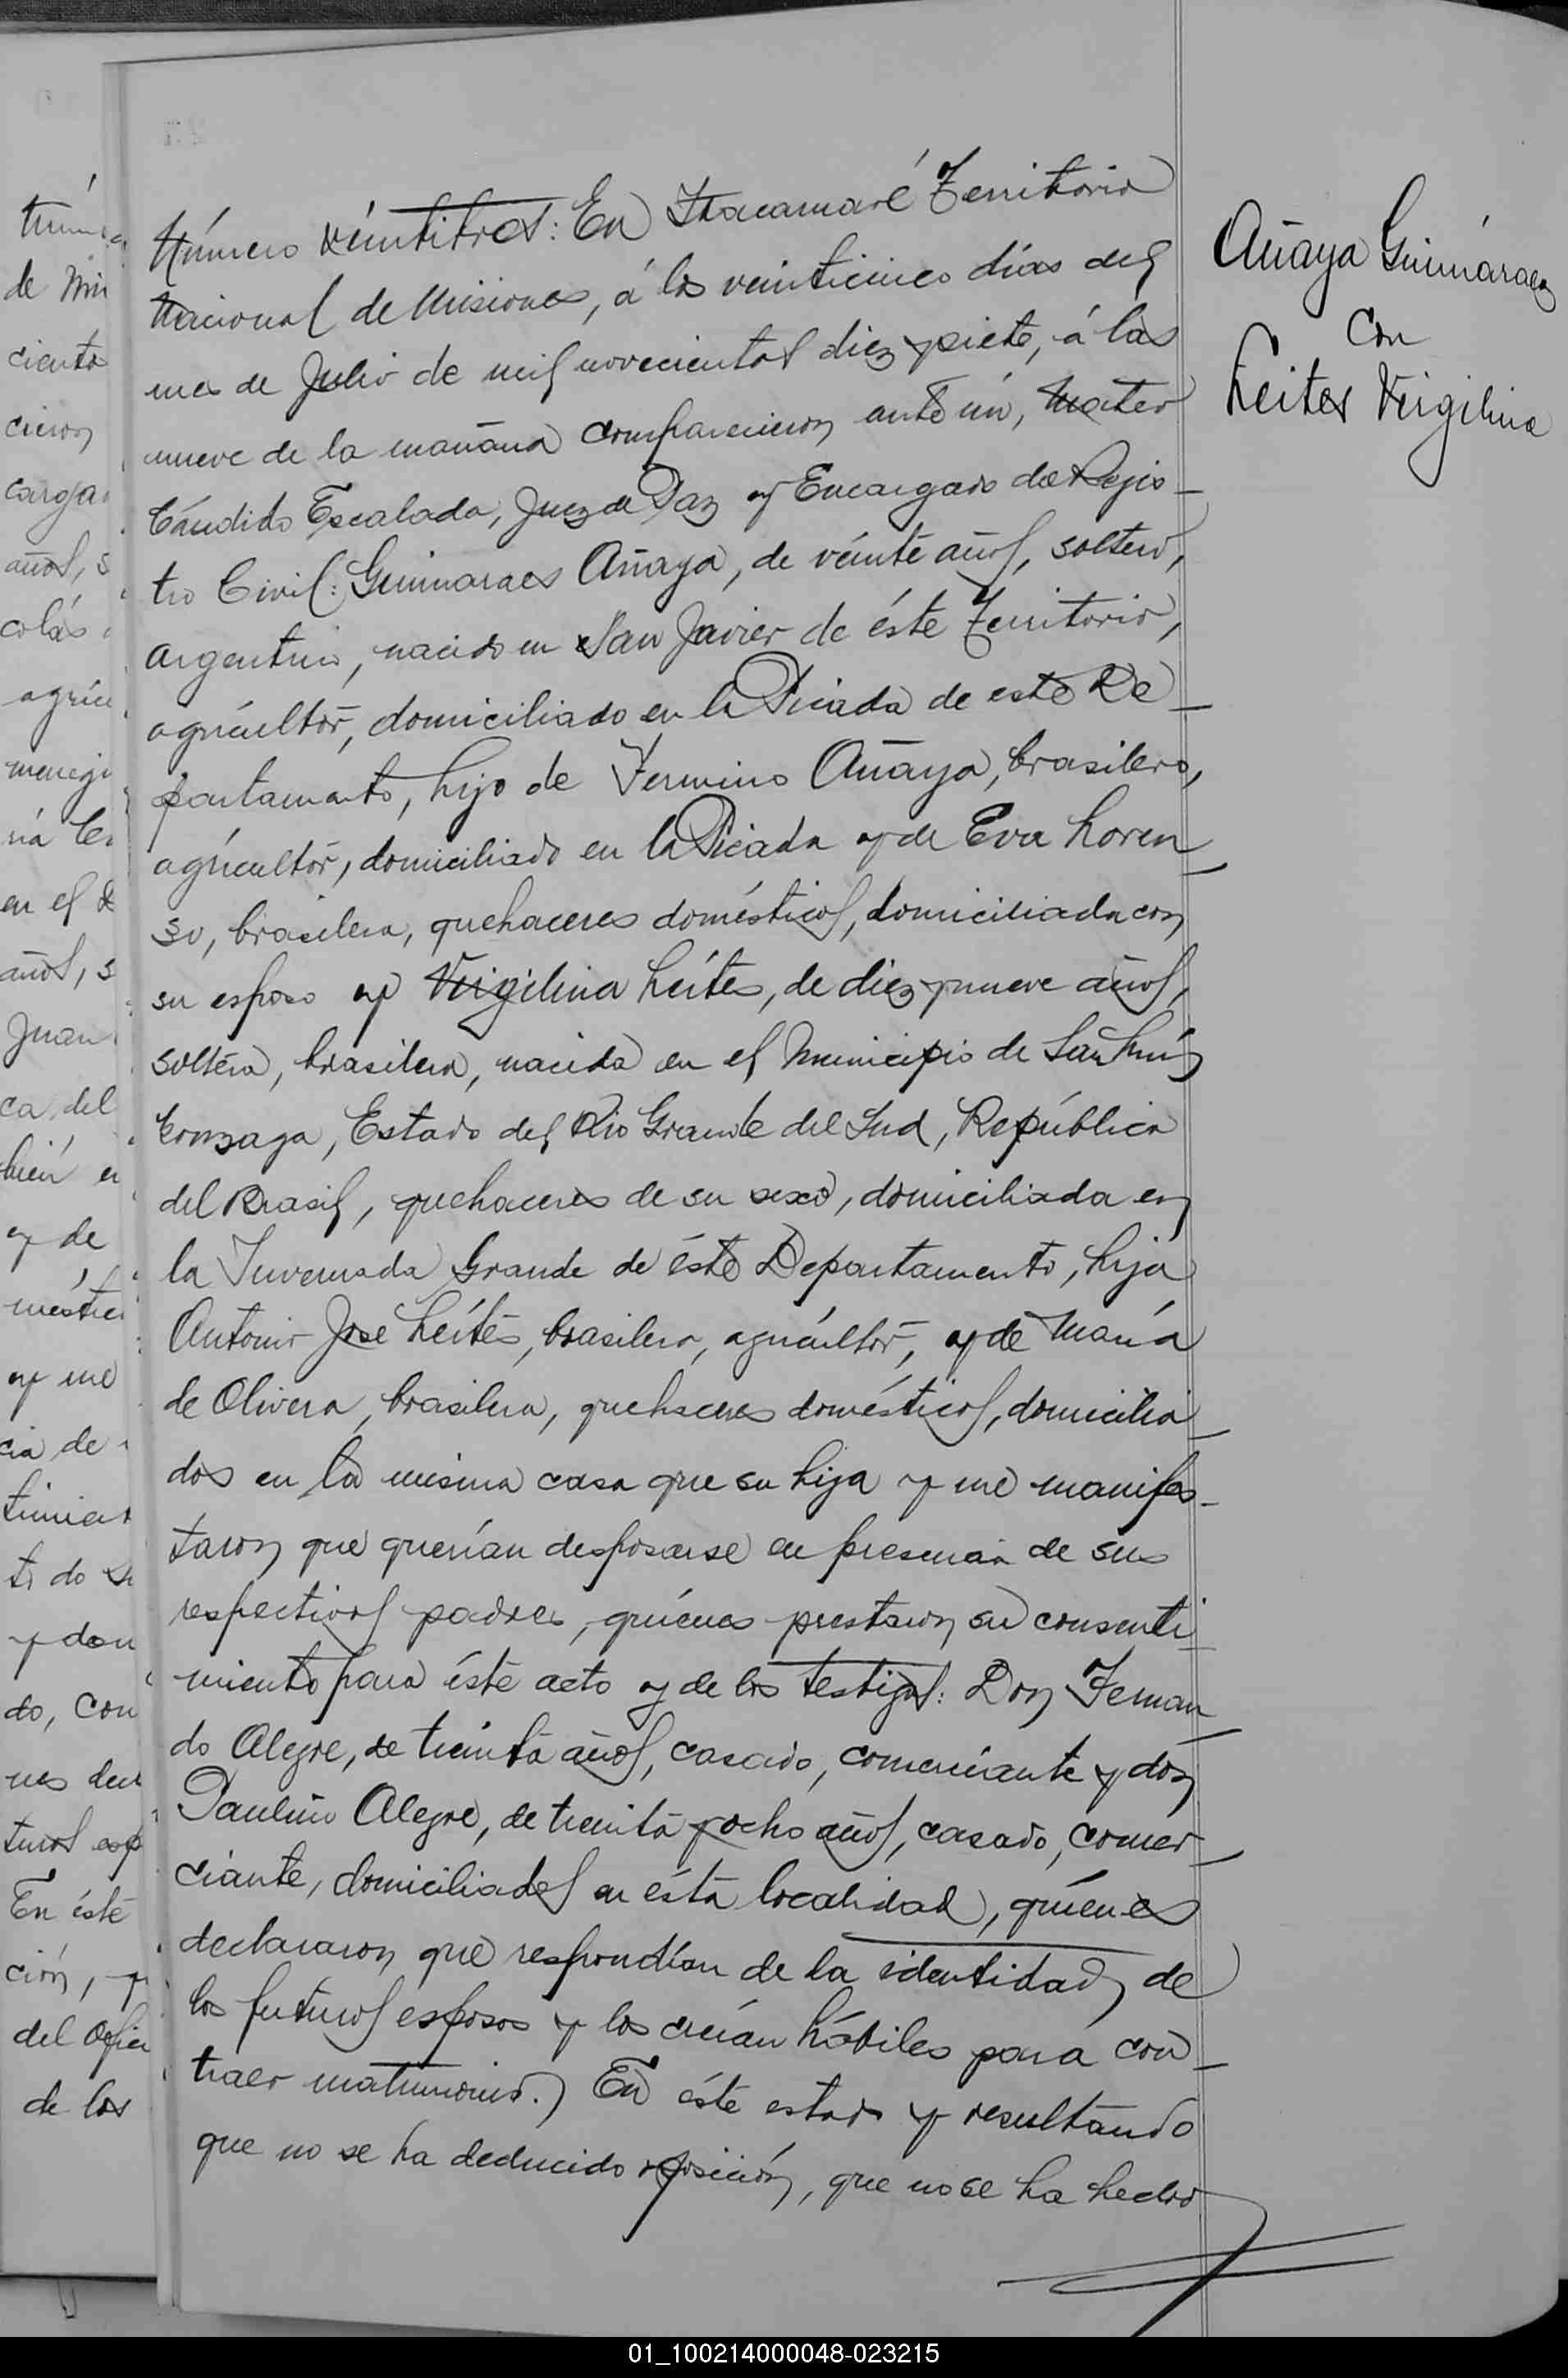 Número veintitres: En Itacaruaré Territorio
Nacional de Misiones, á los veinticinco días del
mes de Julio de mil novecientos diez y siete, á las
nueve de la mañana comparecieron ante mí, Mateo
Cándido Escalada, Juez de Paz y Encargado del Regis-
tro Civil: Guimaraes Añaya, de veinte años, soltero,
argentino, nacido en San Javier de éste Territorio,
agricultor, domiciliado en la Picada de este De-
partamento, hijo de Fermino Añaya, brasilero,
agricultor, domiciliado en la Picada y de Eva Loren-
so, brasilera, quehaceres domésticos, domiciliada con
su esposo y Virgilina Leites, de diez y nueve años,
soltera, brasilera, nacida en el Municipio de San Luis
Gonzaga, Estado del Rio Grande del Sud, República
del Brasil, quehaceres de su sexo, domiciliada en
la Invernada Grande de éste Departamento, hija
Antonio José Leites, brasilero, agricultor, y de María
de Olivera, brasilera, quehaceres domésticos, domicilia-
dos en la misma casa que su hija y me manifes-
taron que querían desposarse en presencia de sus
respectivos padres, quiénes prestaron su consenti-
miento para éste acto y de los testigos: Don Fernan-
do Alegre, de treinta años, casado, comerciante y don
Paulino Alegre, de treinta y ocho años, casado, comer-
ciante, domiciliados en ésta localidad, quiénes
declararon que respondían de la identidad de
los futuros esposos y los creían hábiles para con-
traer matrimonio.) En éste estado y resultando
que no se ha deducido oposición, que no se ha hecho
Añaya Guimaraes
con
Leites Virgilina
de
ciento
años, s
agric
en el
años, s
Juan
ca del
y de
y me
cia de
do, con
En éste
ción, y
de los
01_100214000048-023215